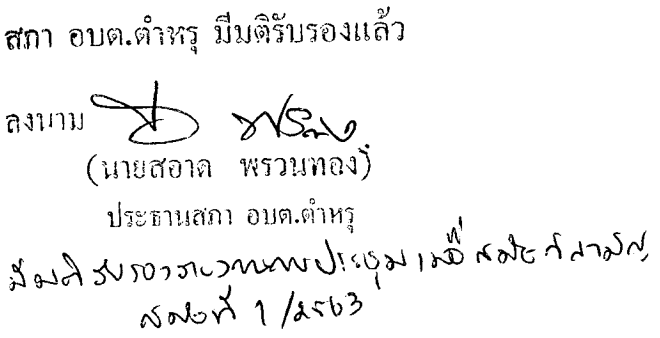 สภา อบต.ตำหรุ มีมติรับรองแล้ว
ลงนาม
(นายสอาด พรวนทอง)
ประธานสภา อบต.ตำหรุ
มีมติรับรองรายงานการประชุมเมื่อสมัยสามัญ
สมัยที่ 1/2563